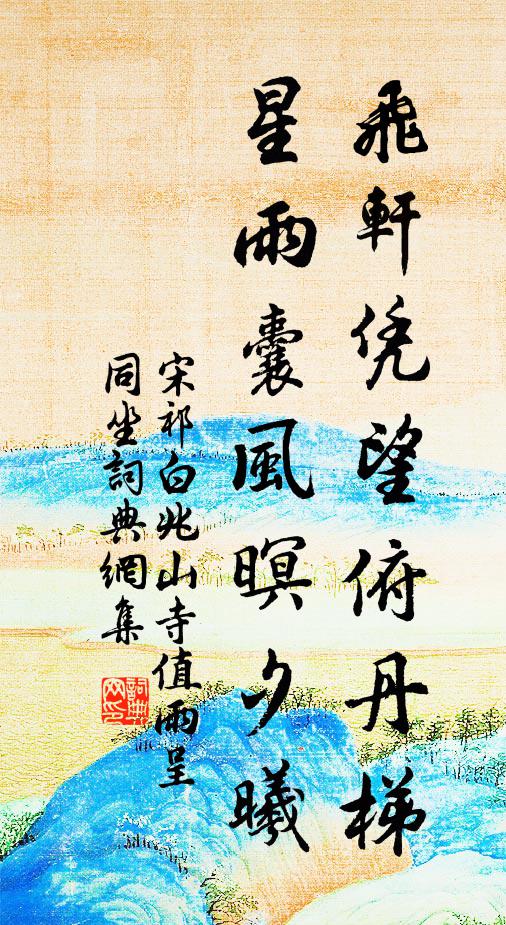 飛軒凭望俯丹梯
星雨囊風暝夕曦
宋祁白兆山寺值雨呈
同坐詞典網集
詞典网印